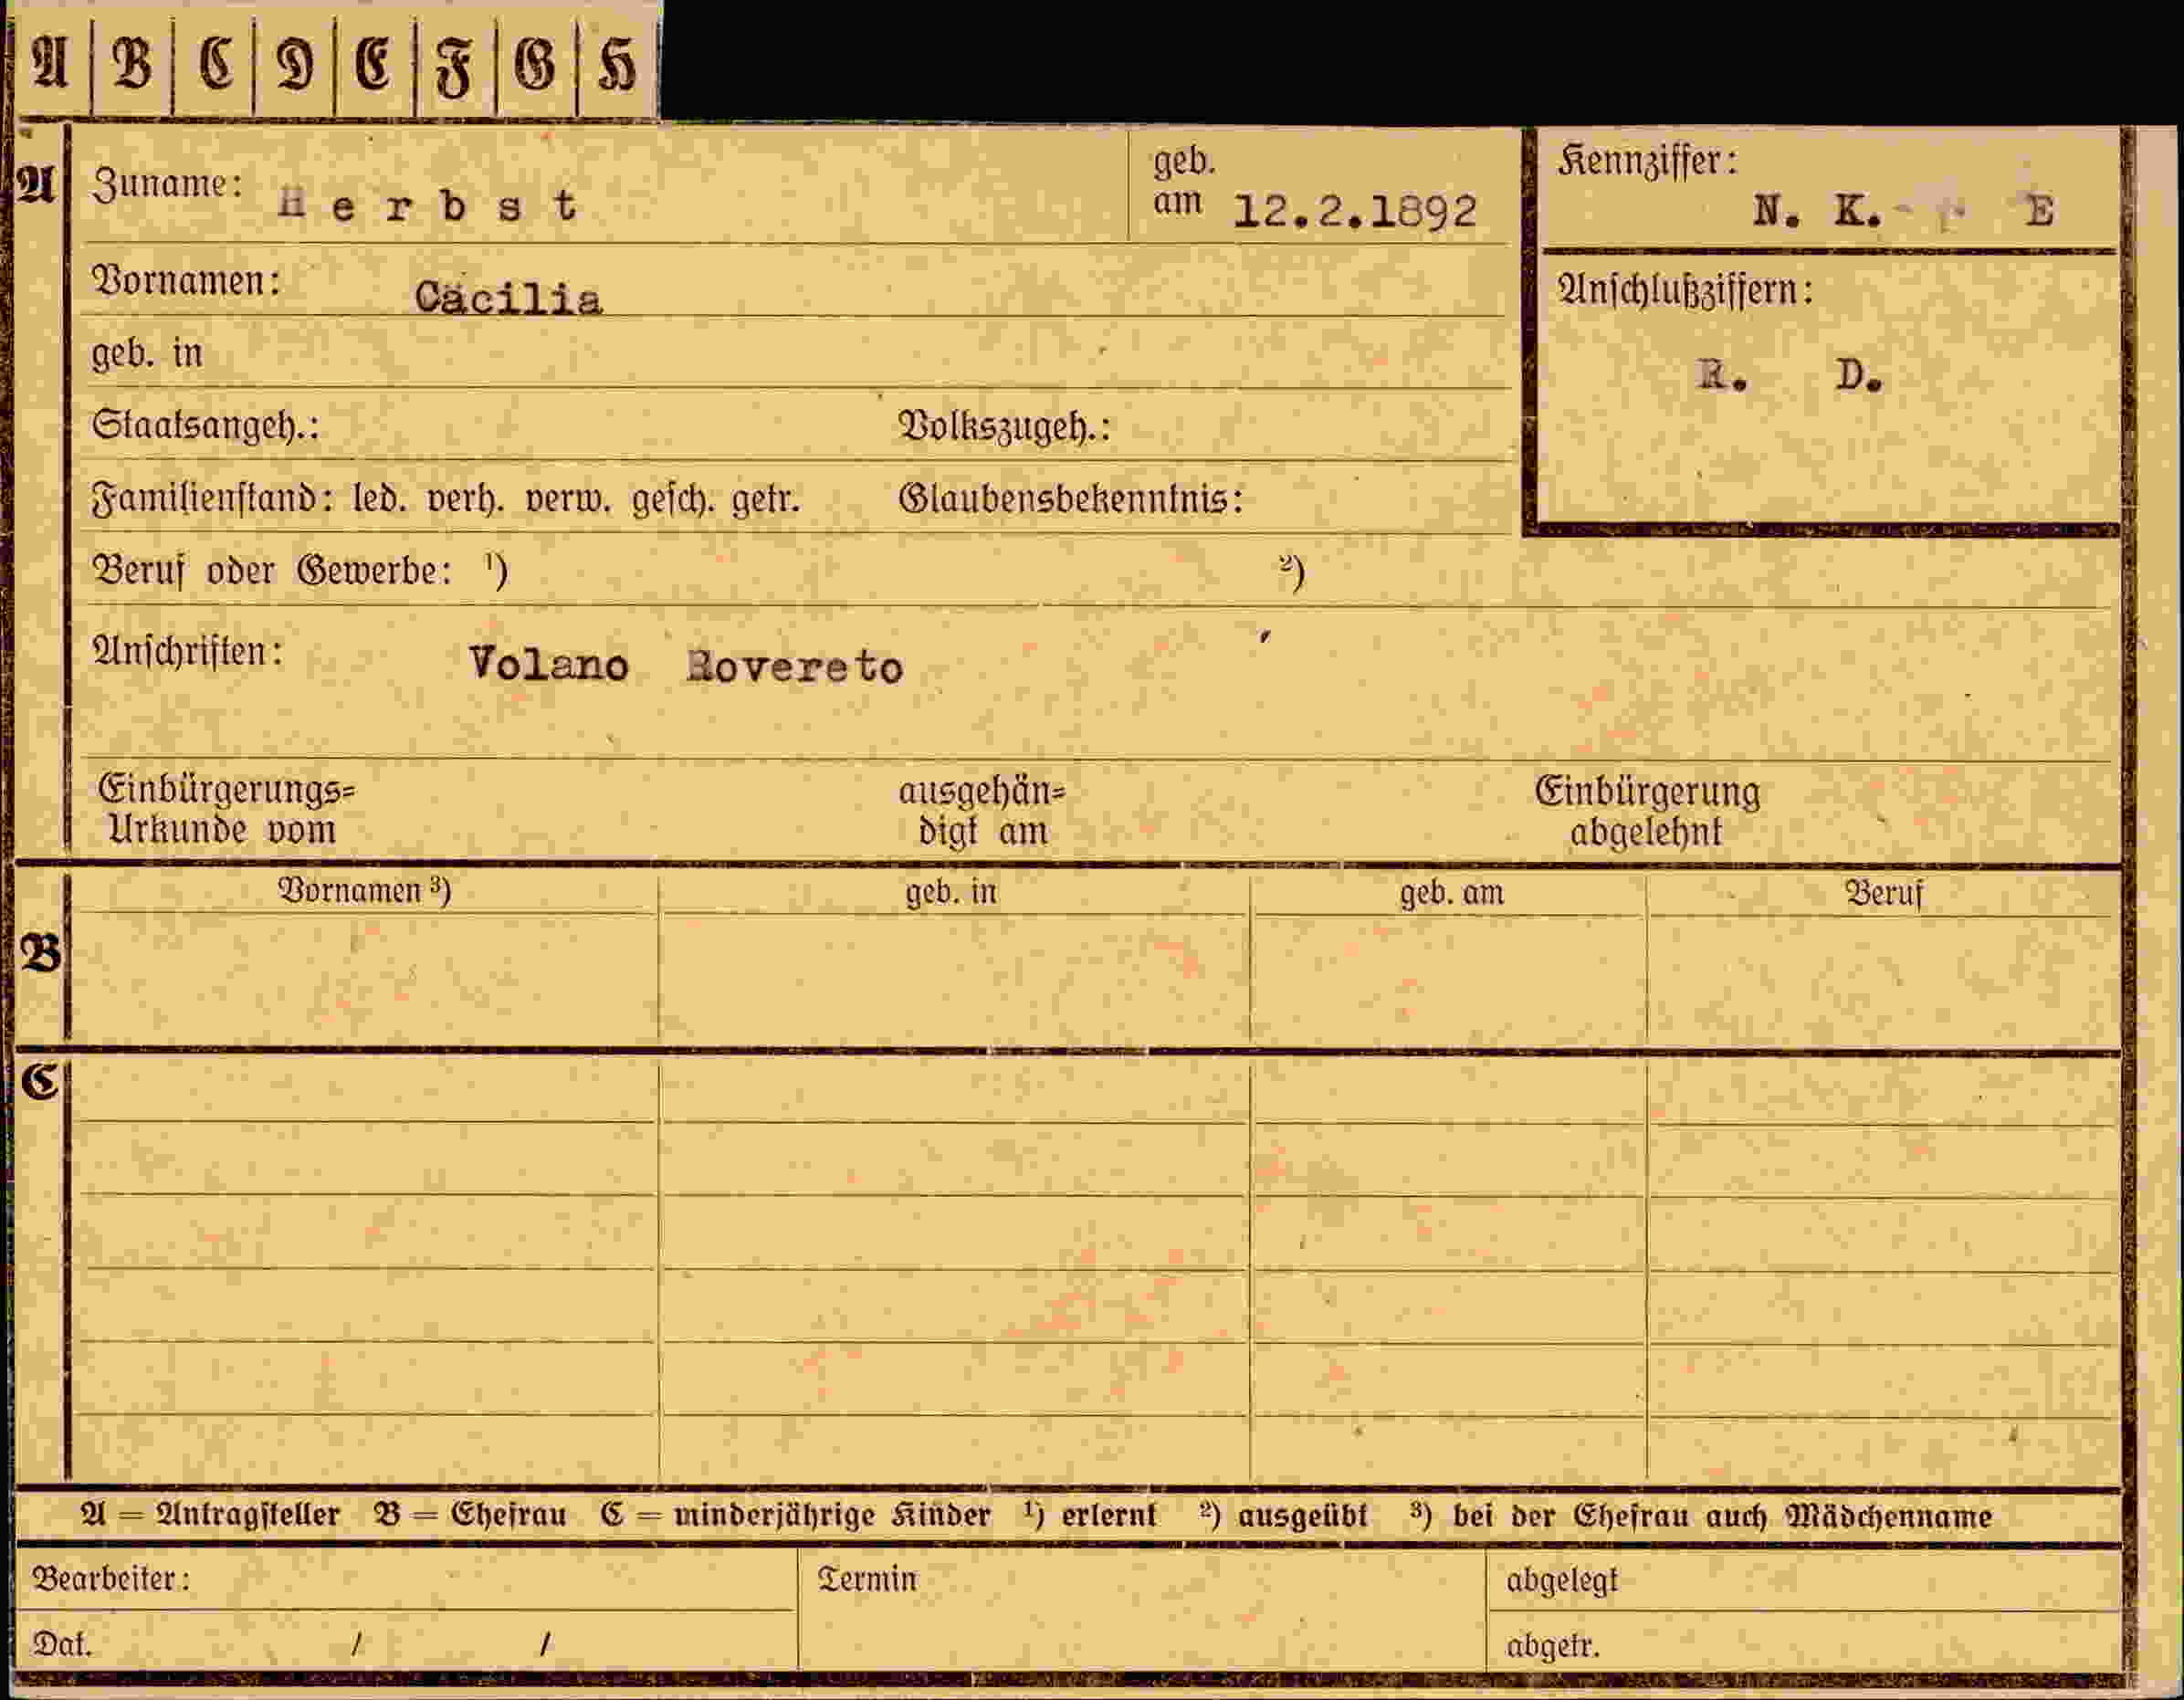 A B C D E F G H
A Zuname: Herbst geb. am 12.2.1892 Kennziffer: N. K. E
Vornamen: Cäcilia Anschlußziffern:
geb. in R. D.
Staatsangeh.: Volkszugeh.:
Familienstand: led. verh. verw. gesch. getr. Glaubensbekenntnis:
Beruf oder Gewerbe: ¹) ²)
Anschriften: Volano Rovereto
Einbürgerungs= ausgehän= Einbürgerung
Urkunde vom digt am abgelehnt
B Vornamen ³) geb. in geb. am Beruf
C
A = Antragsteller B = Ehefrau C = minderjährige Kinder ¹) erlernt ²) ausgeübt ³) bei der Ehefrau auch Mädchenname
Bearbeiter: Termin abgelegt
Dat. / / abgetr.